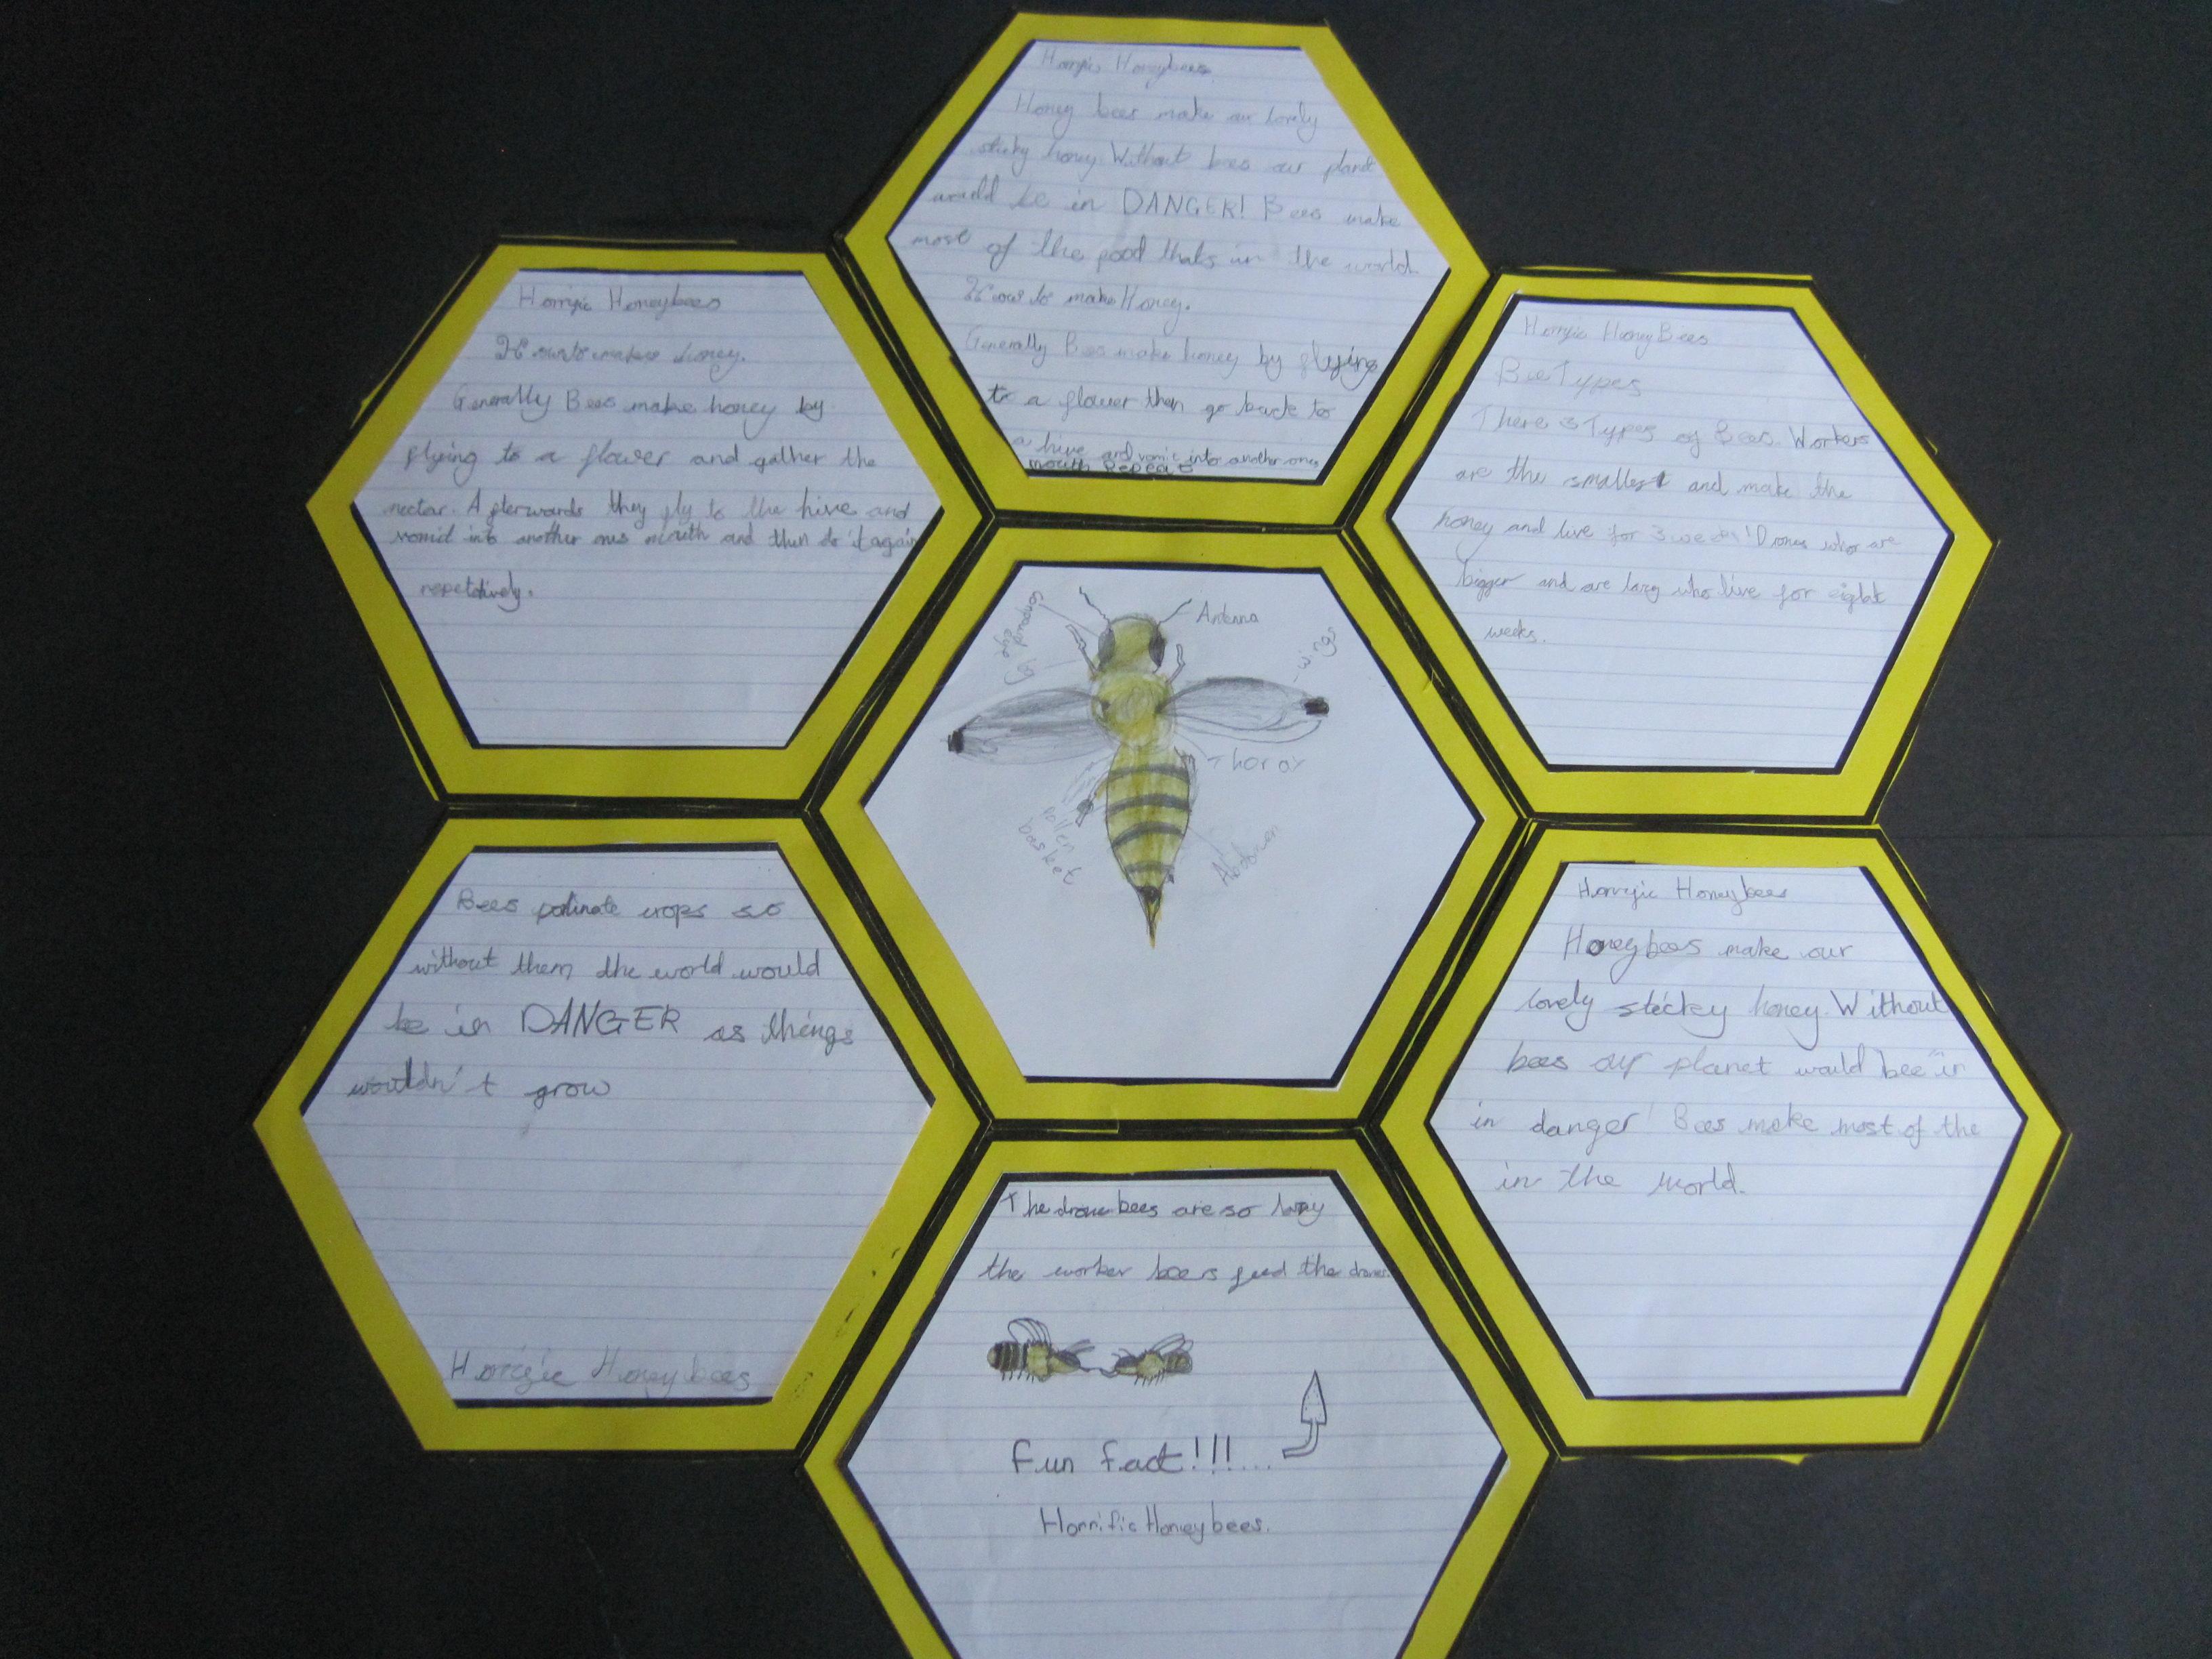 Horrific Honeybees.
Honey bees make our lovely
sticky honey. Without bees our planet
would be in DANGER! Bees make
most of the food thats in the world.
How to make Honey.
Generally Bees make honey by flying
to a flower then go back to
a hive and vomit into another ones
mouth repeat
Horrific Honeybees
How to make honey.
Generally Bees make honey by
flying to a flower and gather the
nectar. Afterwards they fly to the hive and
vomid into another ones mouth and then do it again
repetetively.
Horrific HoneyBees
Bee Types
There 3 Types of Bees. Workers
are the smallest and make the
honey and live for 3 weeks! Drones who are
bigger and are lazy who live for eight
weeks.
compound eye
Antenna
wings
Thorax
pollen
basket
Abdomen
Bees polinate crops so
without them the world would
be in DANGER as things
wouldn't grow
Horrific Honeybees
Horrific Honeybees
Honeybees make our
lovely stickey honey. Without
bees our planet would bee in
in danger! Bees make most of the
in the world.
The drone bees are so lazy
the worker bees feed the drones.
Fun fact!!!...
Horrific Honeybees.